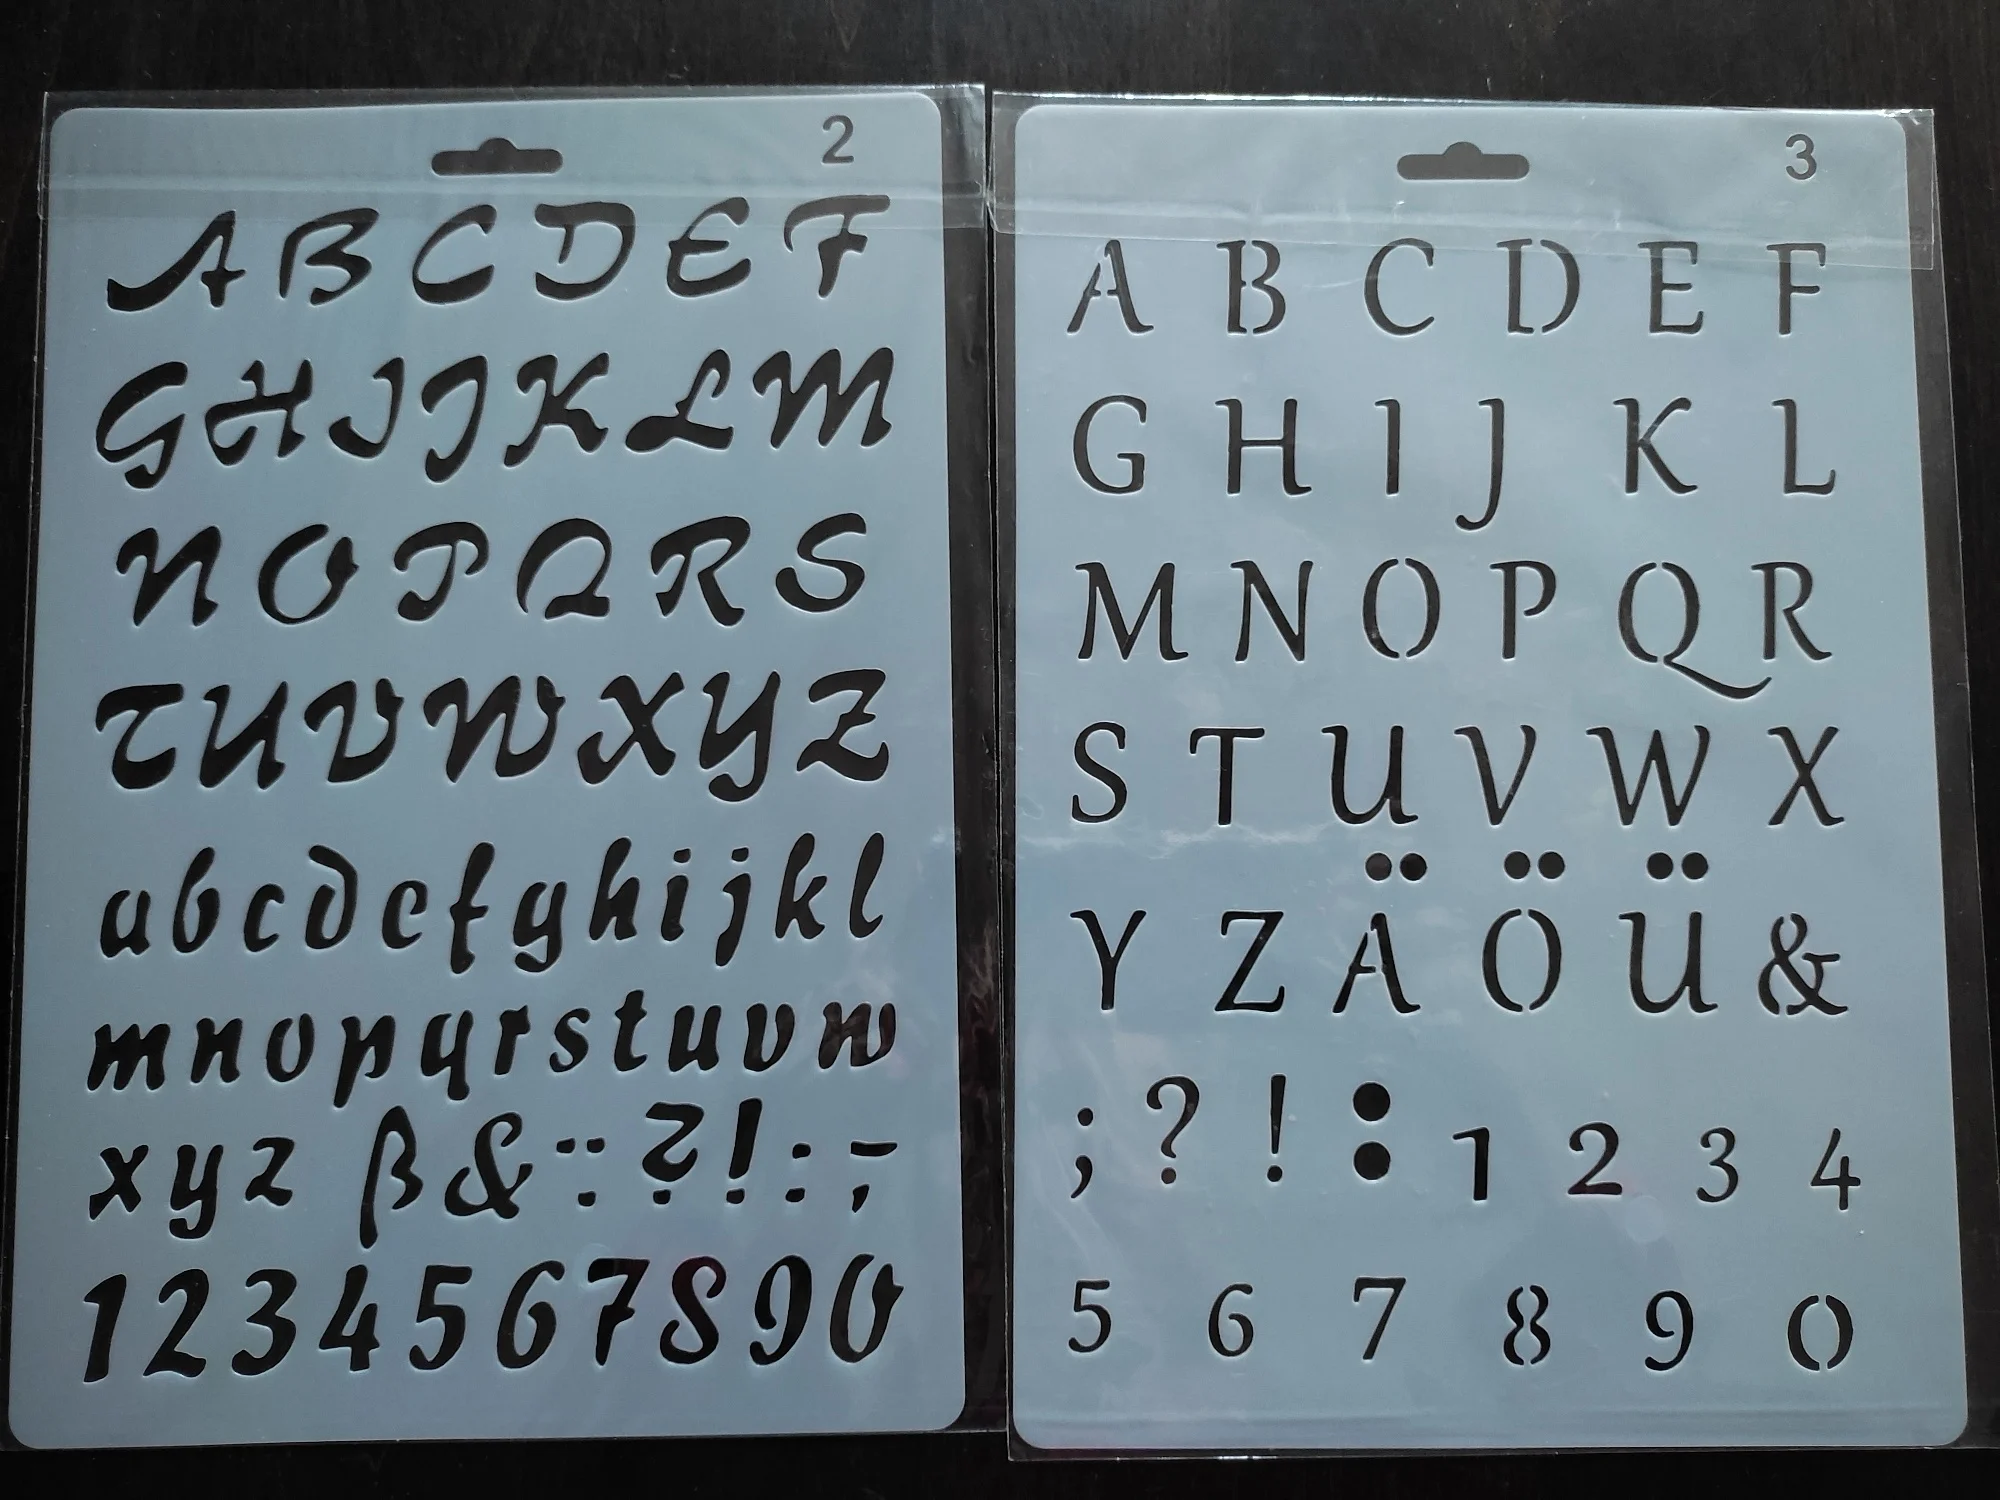 2
A B C D E F
G H I J K L M
N O P Q R S
T U V W X Y Z
a b c d e f g h i j k l
m n o p q r s t u v w
x y z ß & : : ? ! : ; -
1 2 3 4 5 6 7 8 9 0
3
A B C D E F
G H I J K L
M N O P Q R
S T U V W X
Y Z Ä Ö Ü &
; ? ! : 1 2 3 4
5 6 7 8 9 0